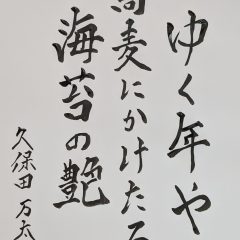 ゆく年や
蕎麦にかけたる
海苔の艶
久保田万太